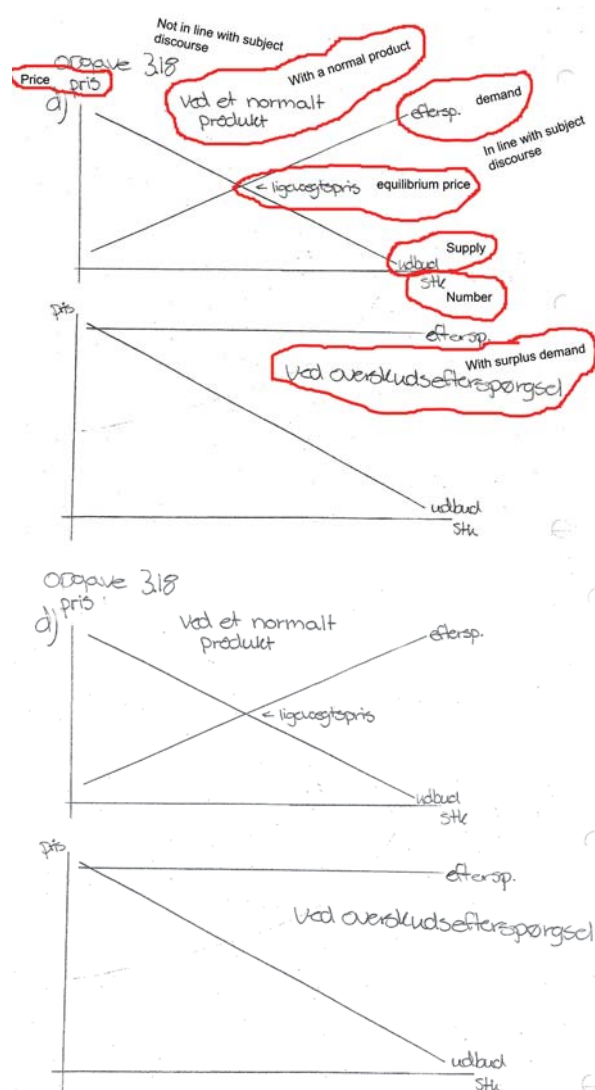 Not in line with subject
discourse
Opgave 3.18
Price
pris
With a normal product
d)
Ved et normalt
produkt
eftersp.
demand
In line with subject
discourse
← ligevægtspris
equilibrium price
Supply
udbud
stk
Number
pris
eftersp.
With surplus demand
Ved overskudsefterspørgsel
udbud
stk
Opgave 3.18
pris
d)
Ved et normalt
produkt
eftersp.
← ligevægtspris
udbud
stk
pris
eftersp.
Ved overskudsefterspørgsel
udbud
stk